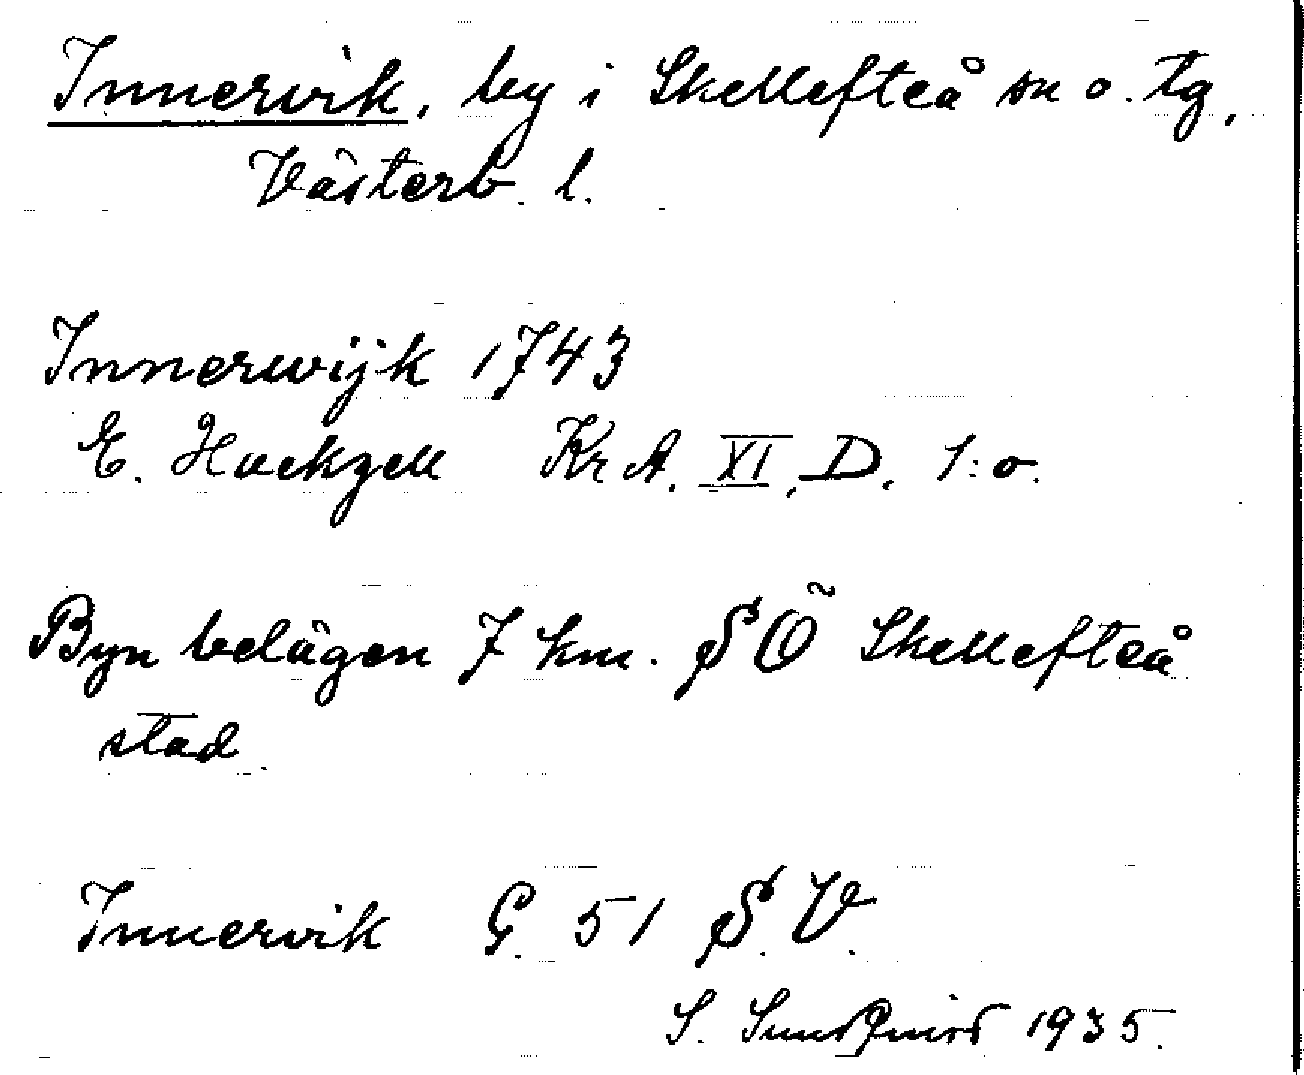 Innervik, by i Skellefteå sn o. tg,
Västerb. l.
Innerwijk 1743
E. Hackzell KrA. XI, D. 1:o.
Byn belägen 7 km. SÖ Skellefteå
stad.
Innervik G. 51 S.V.
S. Sundqvist 1935.